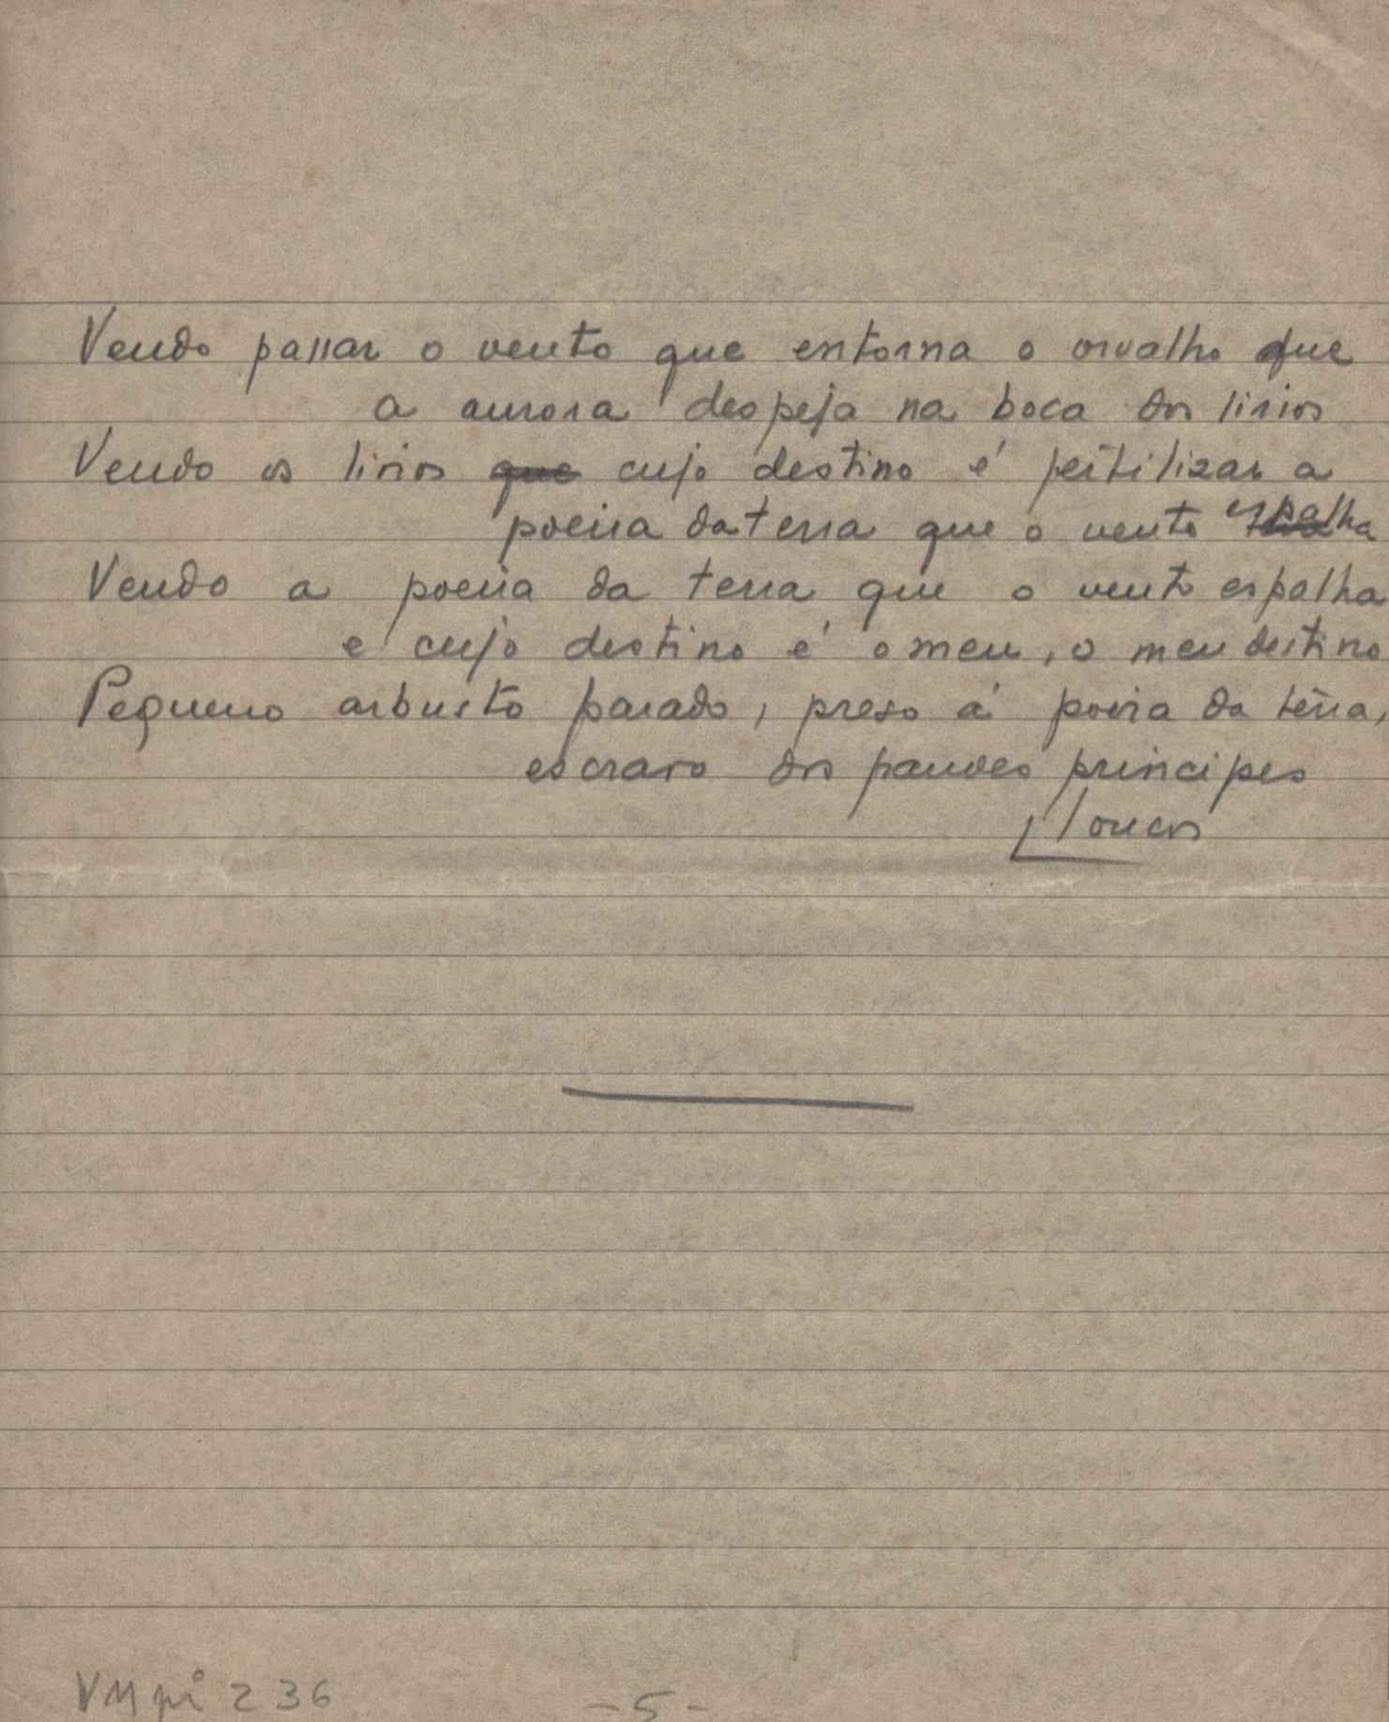 Vendo passar o vento que entorna o orvalho que
a aurora despeja na boca dos lirios
Vendo os lirios que cujo destino é fertilizar a
poeira da terra que o vento espalha
Vendo a poeira da terra que o vento espalha
e cujo destino é o meu, o meu destino
Pequeno arbusto parado, preso á poeira da terra,
escravo dos grandes principes
loucos
VM pi 236
-5-